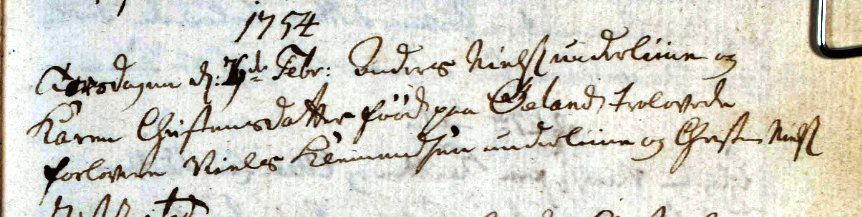 1754
Torsdagen d: 7de Febr: Anders Niels. underliine og
Karen Christensdatter fööd paa Öeland trolovede
forlovere Niels underliine og Christen Niels.